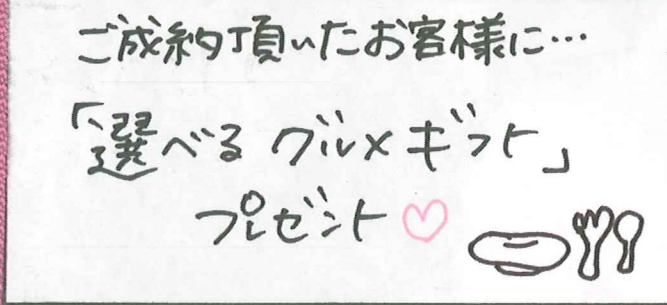 ご成約頂いたお客様に…
「選べるグルメギフト」
プレゼント♡